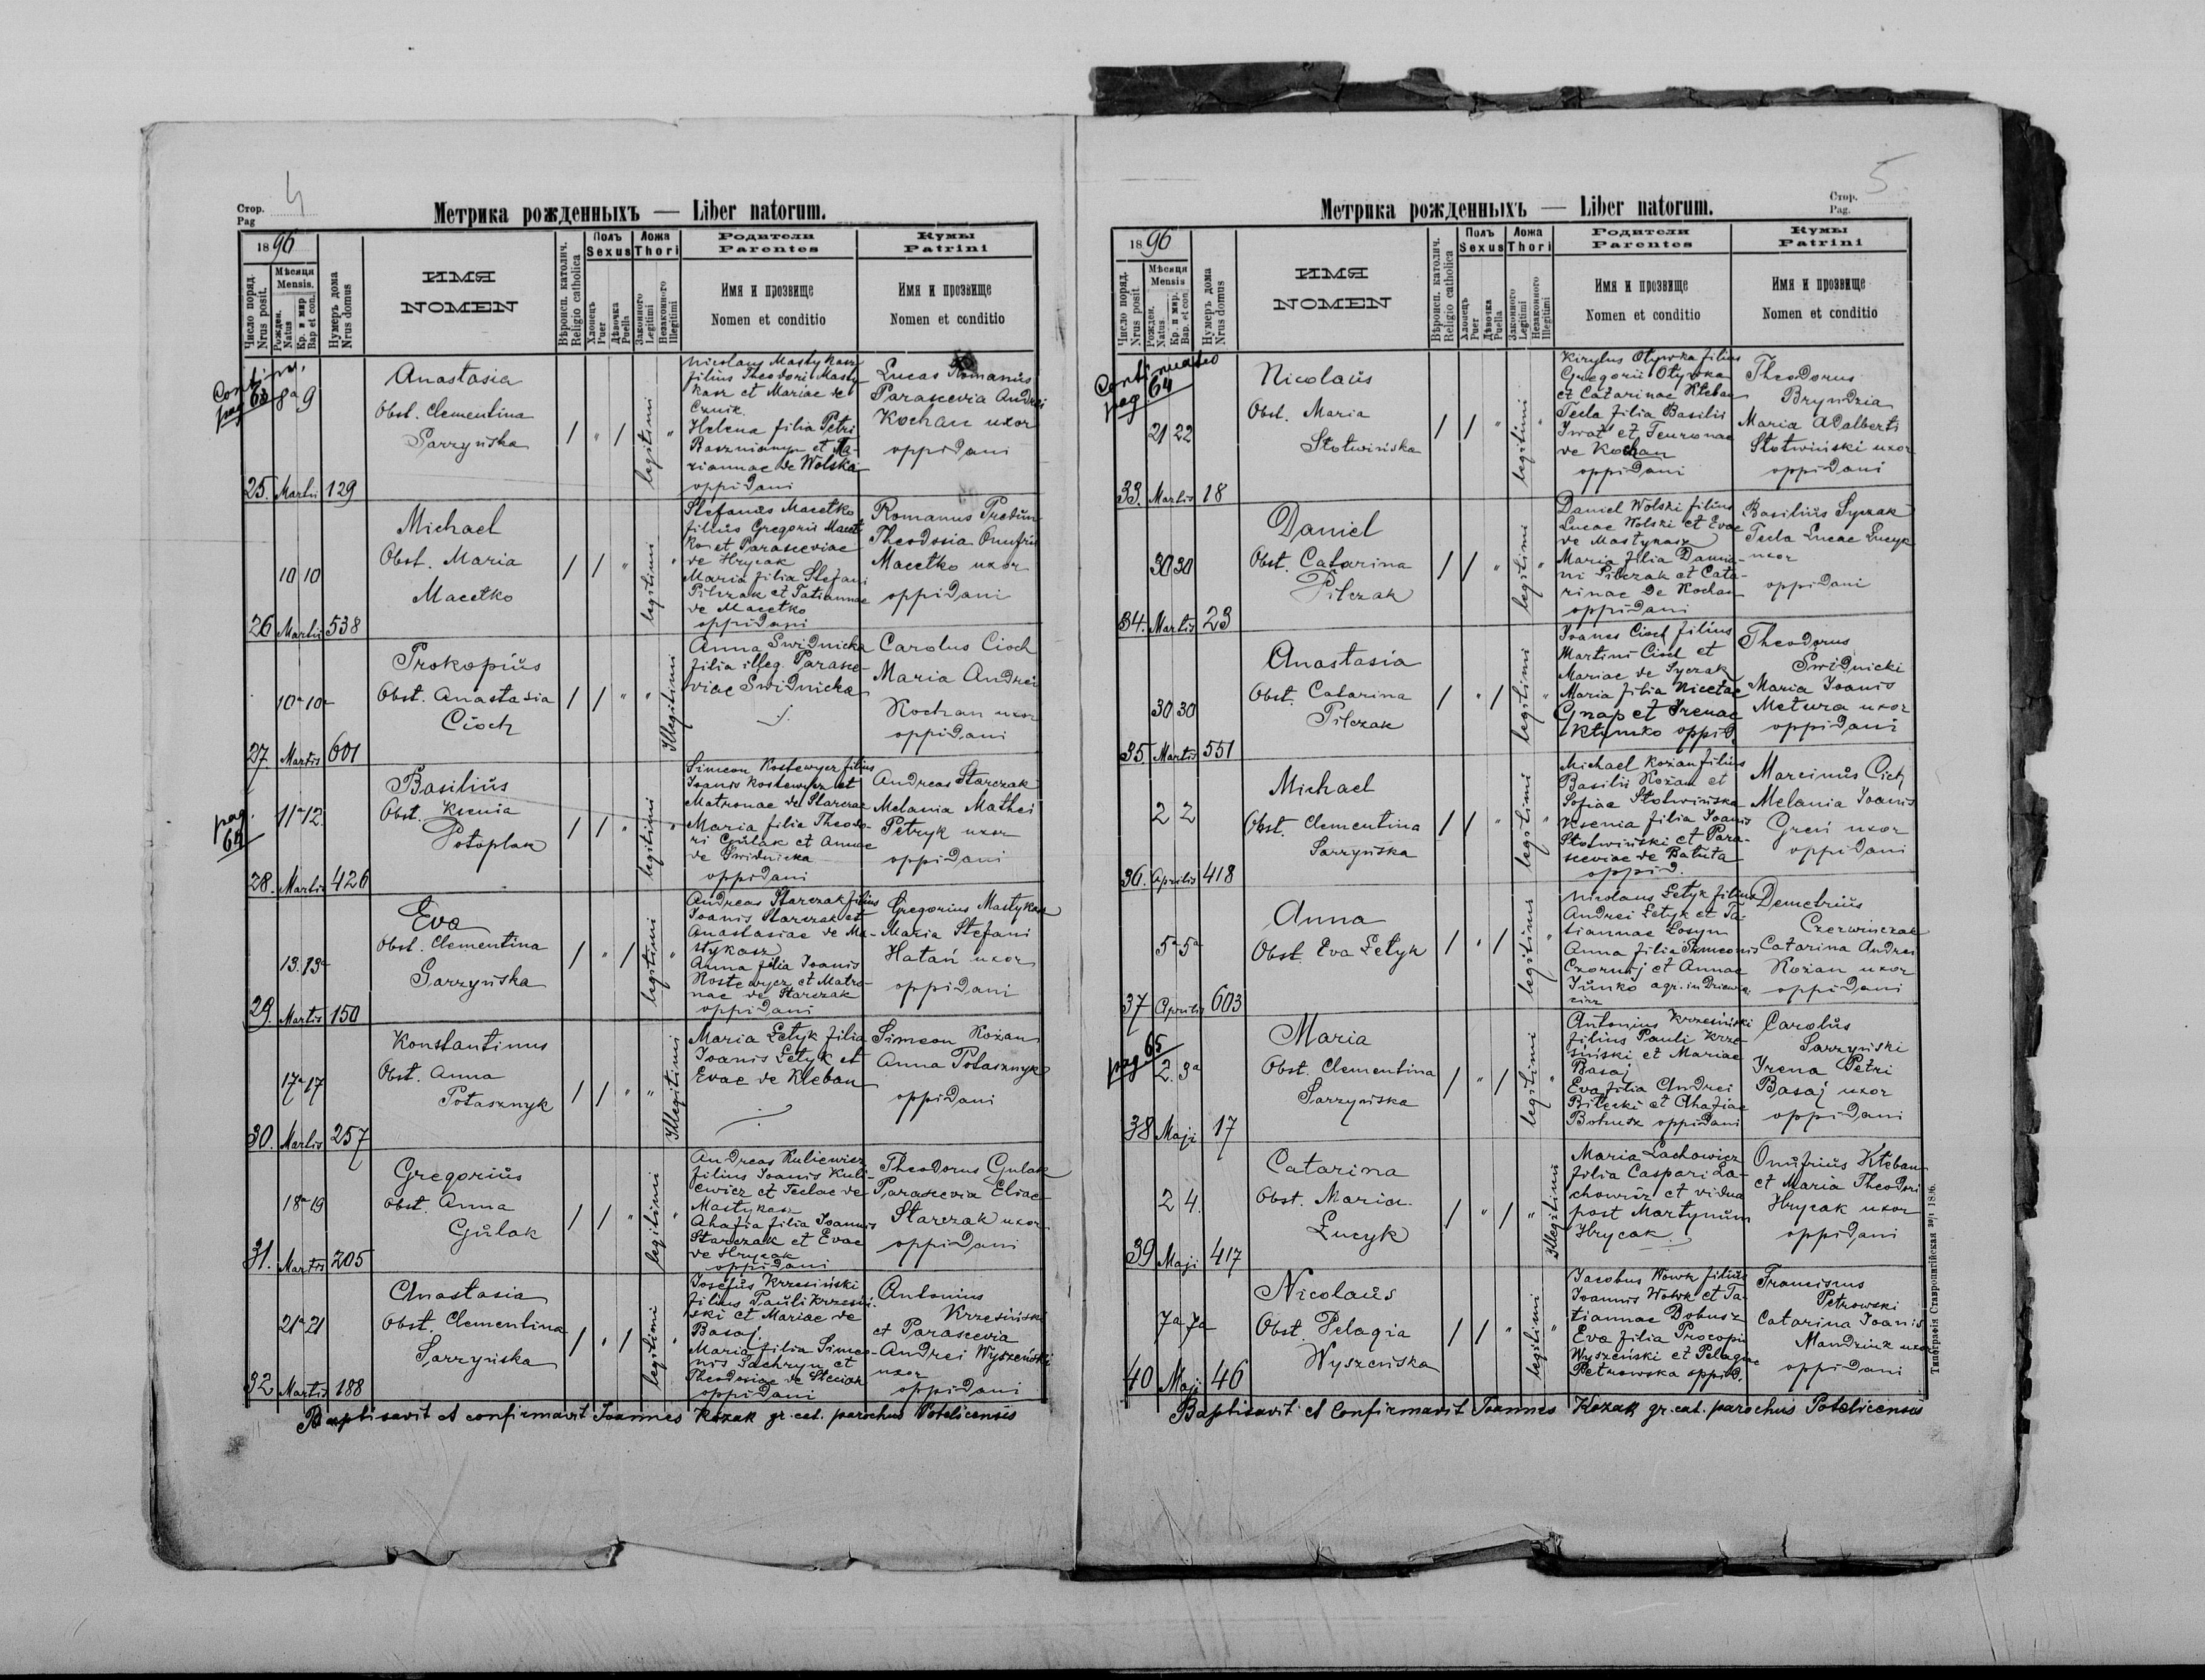 Стор. 4
Pag
Метрика рожденныхъ — Liber natorum.
1896
Число поряд. Nrus posit.
Мѣсяця Mensis.
Рожден. Natus
Кр. и мир Bap. et con.
Нумеръ дома Nrus domus
ИМЯ
NOMEN
Вѣроисп. католич. Religio catholica
Полъ Sexus
Хлопецъ Puer
Дѣвочка Puella
Ложа Thori
Законного Legitimi
Незаконного Illegitimi
Родители
Parentes
Имя и прозвище
Nomen et conditio
Кумы
Patrini
Имя и прозвище
Nomen et conditio
pag 63
25. 8a 9 Martii 129
Anastasia
Obst. Clementina
Sarzyńska
1 " 1 legitimi "
Nicolaus Mastykasz
filius Theodori Masty
kasz et Mariae de
Helena filia Petri
et Ma-
riannae de Wolska
oppidani
Lucas Romanus
Parascevia Andrei
Kochan uxor
oppidani
26 10 10 Martii 538
Michael
Obst. Maria
Macetko
1 1 " legitimi "
Stefanus Macetko
filius Gregorii Macet
ko et Parasceviae
de Hrycak
Maria filia Stefani
Pilczak et Tatiannae
de Macetko
oppidani
Romanus
Theodosia Onufrii
Macetko uxor
oppidani
27. 10a 10a Martis 601
Prokopius
Obst. Anastasia
Cioch
1 1 " " Illegitimi
Anna Swidnicka
filia illeg. Parasce-
viae Swidnicka
Carolus Cioch
Maria Andrei
Kochan uxor
oppidani
pag. 64
28. 11a 12. Martis 426
Basilius
Obst. Ksenia
Potoplak
1 1 " legitimi "
Simeon Kostewycz filius
Joanis Kostewycz et
Matronae de Starczak
Maria filia Theodo-
ri Gulak et Annae
de Swidnicka
oppidani
Andreas Starczak
Melania Mathei
Petryk uxor
oppidani
29. 13. 13a Martis 150
Eva
Obst. Clementina
Sarzyńska
1 " 1 legitimi "
Andreas Starczak filius
Joanis Starczak et
Anastasiae de Ma-
stykasz
Anna filia Joanis
Kostewycz et Matro-
nae de Starczak
oppidani
Gregorius Mastykasz
Maria Stefani
Hatań uxor
oppidani
30. 17a 17 Martis 257
Konstantinus
Obst. Anna
Potasznyk
1 1 " " Illegitimi
Maria Łetyk filia
Joanis Łetyk et
Evae de Kleban
Simeon Kożan
Anna Potasznyk
oppidani
31. 18a 19 Martis 205
Gregorius
Obst. Anna
Gulak
1 1 " legitimi "
Andreas Kuliewicz
filius Joanis Kuli-
ewicz et Teclae de
Mastykasz
Ahafia filia Joannis
Starczak et Evae
de Hrycak
oppidani
Theodorus Gulak
Parascevia Eliae
Starczak uxor
oppidani
32 21a 21 Martis 188
Anastasia
Obst. Clementina
Sarzyńska
1 " 1 legitimi "
Josefus Krzesiński
filius Pauli Krzesiń-
ski et Mariae de
Basaj.
Maria filia Simeo-
nis Pachryn et
Theodosiae de Steciak
oppidani
Antonius
Krzesiński
et Parascevia
Andrei Wyszeński
uxor
oppidani
Baptisavit et confirmavit Joannes Kozak gr. cat. parochus Potelicensis
Стор. 5
Pag.
Метрика рожденныхъ — Liber natorum.
1896
Число поряд. Nrus posit
Мѣсяця Mensis
Рожден. Natus
Кр. и мир. Bap. et con.
Нумеръ дома Nrus domus
ИМЯ
NOMEN
Вѣроисп. католич. Religio catholica
Полъ Sexus
Хлопецъ Puer
Дѣвочка Puella
Ложа Thori
Законного Legitimi
Незаконного Illegitimi
Родители
Parentes
Имя и прозвище
Nomen et conditio
Кумы
Patrini
Имя и прозвище
Nomen et conditio
Continuatio
pag. 64
33. 21 22 Martis 18
Nicolaus
Obst. Maria
Słotwińska
1 1 " legitimi "
Kirylus Otywka filius
Gregorii Otywka
et Catarinae Kleban
Tecla filia Basilii
Iwat et
de Kochan
oppidani
Theodorus
Bryndzia
Maria Adalberti
Słotwiński uxor
oppidani
34. 30 30 Martis 23
Daniel
Obst. Catarina
Pilczak
1 1 " legitimi "
Daniel Wolski filius
Lucae Wolski et Evae
de Mastykasz
Maria filia Damia-
ni Pilczak et Cata-
rinae de Kochan
oppidani
Basilius Syczak
Tecla Lucae Łucyk
uxor
oppidani
35 30 30 Martis 551
Anastasia
Obst. Catarina
Pilczak
1 " 1 legitimi "
Joanes Cioch filius
Martini Cioch et
Mariae de Syczak
Maria filia Nicetae
Gnap et Irenae
Kłymko oppid.
Theodorus
Swidnicki
Maria Joanis
Metura uxor
oppidani
36. 2 2 Aprilis 418
Michael
Obst. Clementina
Sarzyńska
1 1 " legitimi "
Michael Kożan filius
Basilii Kożan et
Sofiae Słotwińska
Ksenia filia Joanis
Słotwiński et Para-
sceviae de Batuta
oppid.
Marcinus Cich
Melania Joanis
Greń uxor
oppidani
37 5a 5a Aprilis 603
Anna
Obst. Eva Łetyk
1 " 1 legitimi "
Nicolaus Łetyk filius
Andrei Łetyk et Ta-
tiannae Łosyn
Anna filia Simeonis
Czornij et Annae
Junko agr. in
Demetrius
Czerwinczak
Catarina Andrei
Kożan uxor
oppidani
pag 65
38 2. 3a Maji 17
Maria
Obst. Clementina
Sarzyńska
1 " 1 legitimi "
Antonius Krzesiński
filius Pauli Krze-
siński et Mariae
Basaj
Eva filia Andrei
Bilecki et Ahafiae
Bohusz oppidani
Carolus
Sarzyński
Irena Petri
Basaj uxor
oppidani
39 2 4. Maji 417
Catarina
Obst. Maria
Łucyk
1 " 1 " Illegitimi
Maria Lachowicz
filia Caspari La-
chowicz et vidua
post Martynum
Hrycak
Onufrius Kleban
et Maria Theodori
Hrycak uxor
oppidani
40 7a 7a Maji 46
Nicolaus
Obst. Pelagia
Wyszeńska
1 1 " legitimi "
Jacobus Wowk filius
Joannis Wowk et Ta-
tiannae Bobusz
Eva filia Procopii
Wyszeński et Pelagiae
Petrowska oppid.
Franciscus
Petrowski
Catarina Joanis
Mandziuk uxor
oppidani
Baptisavit et Confirmavit Joannes Kozak gr. cat. parochus Potelicensis
Типографія Ставропигійская 1896.